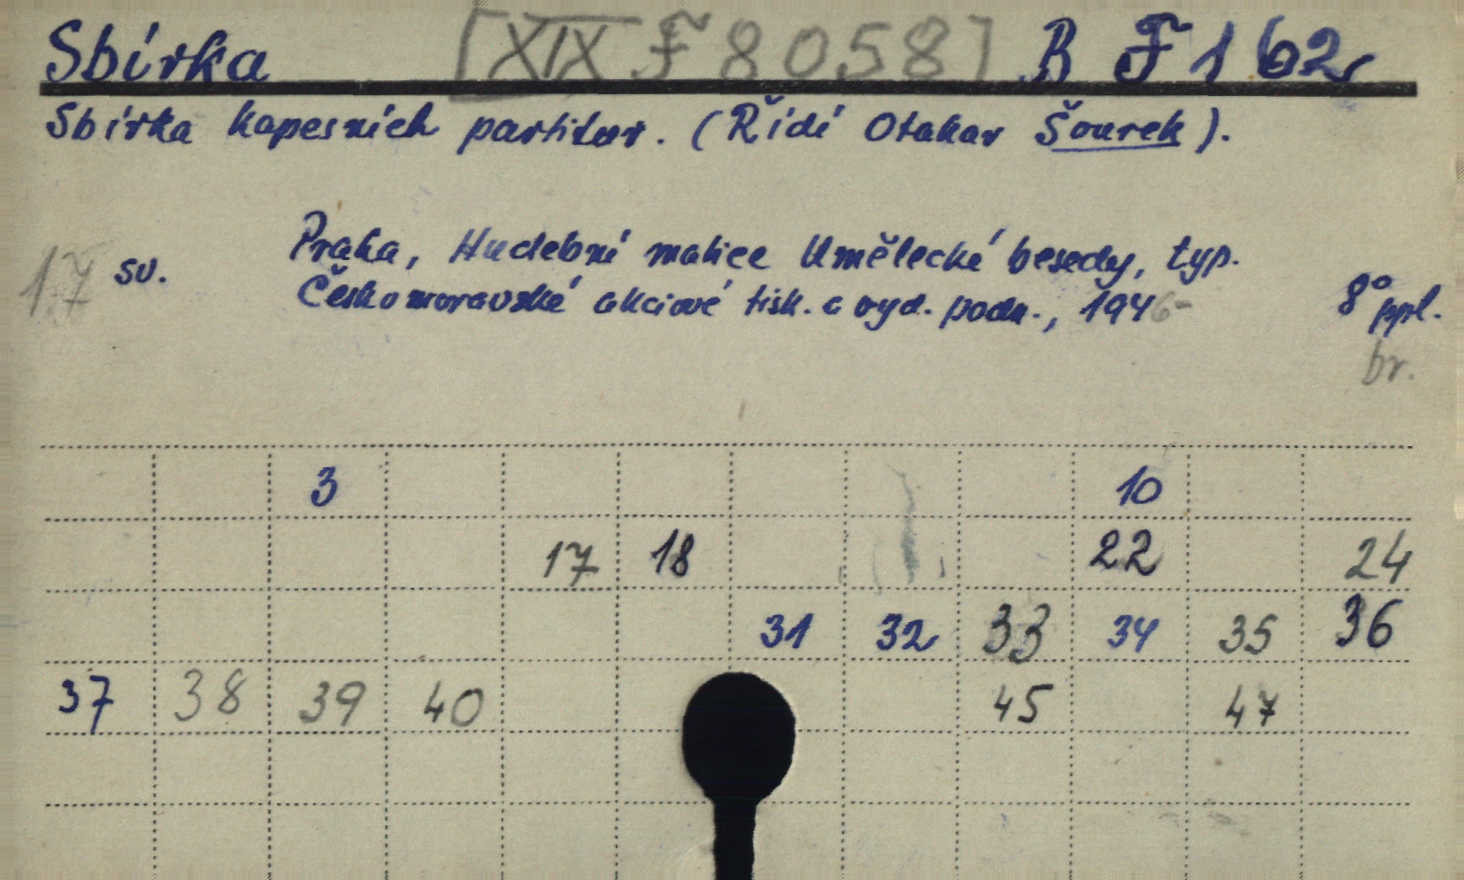 Sbírka [XIX F 8058] B F 162
Sbírka kapesních partitur. (Řídí Otakar Šourek).
Praha, Hudební matice Umělecké besedy, typ.
17 sv. Českomoravské akciové tisk. a vyd. podn., 1946- 8° ppl.
br.
3 10
17 18 22 24
31 32 33 34 35 36
37 38 39 40 45 47